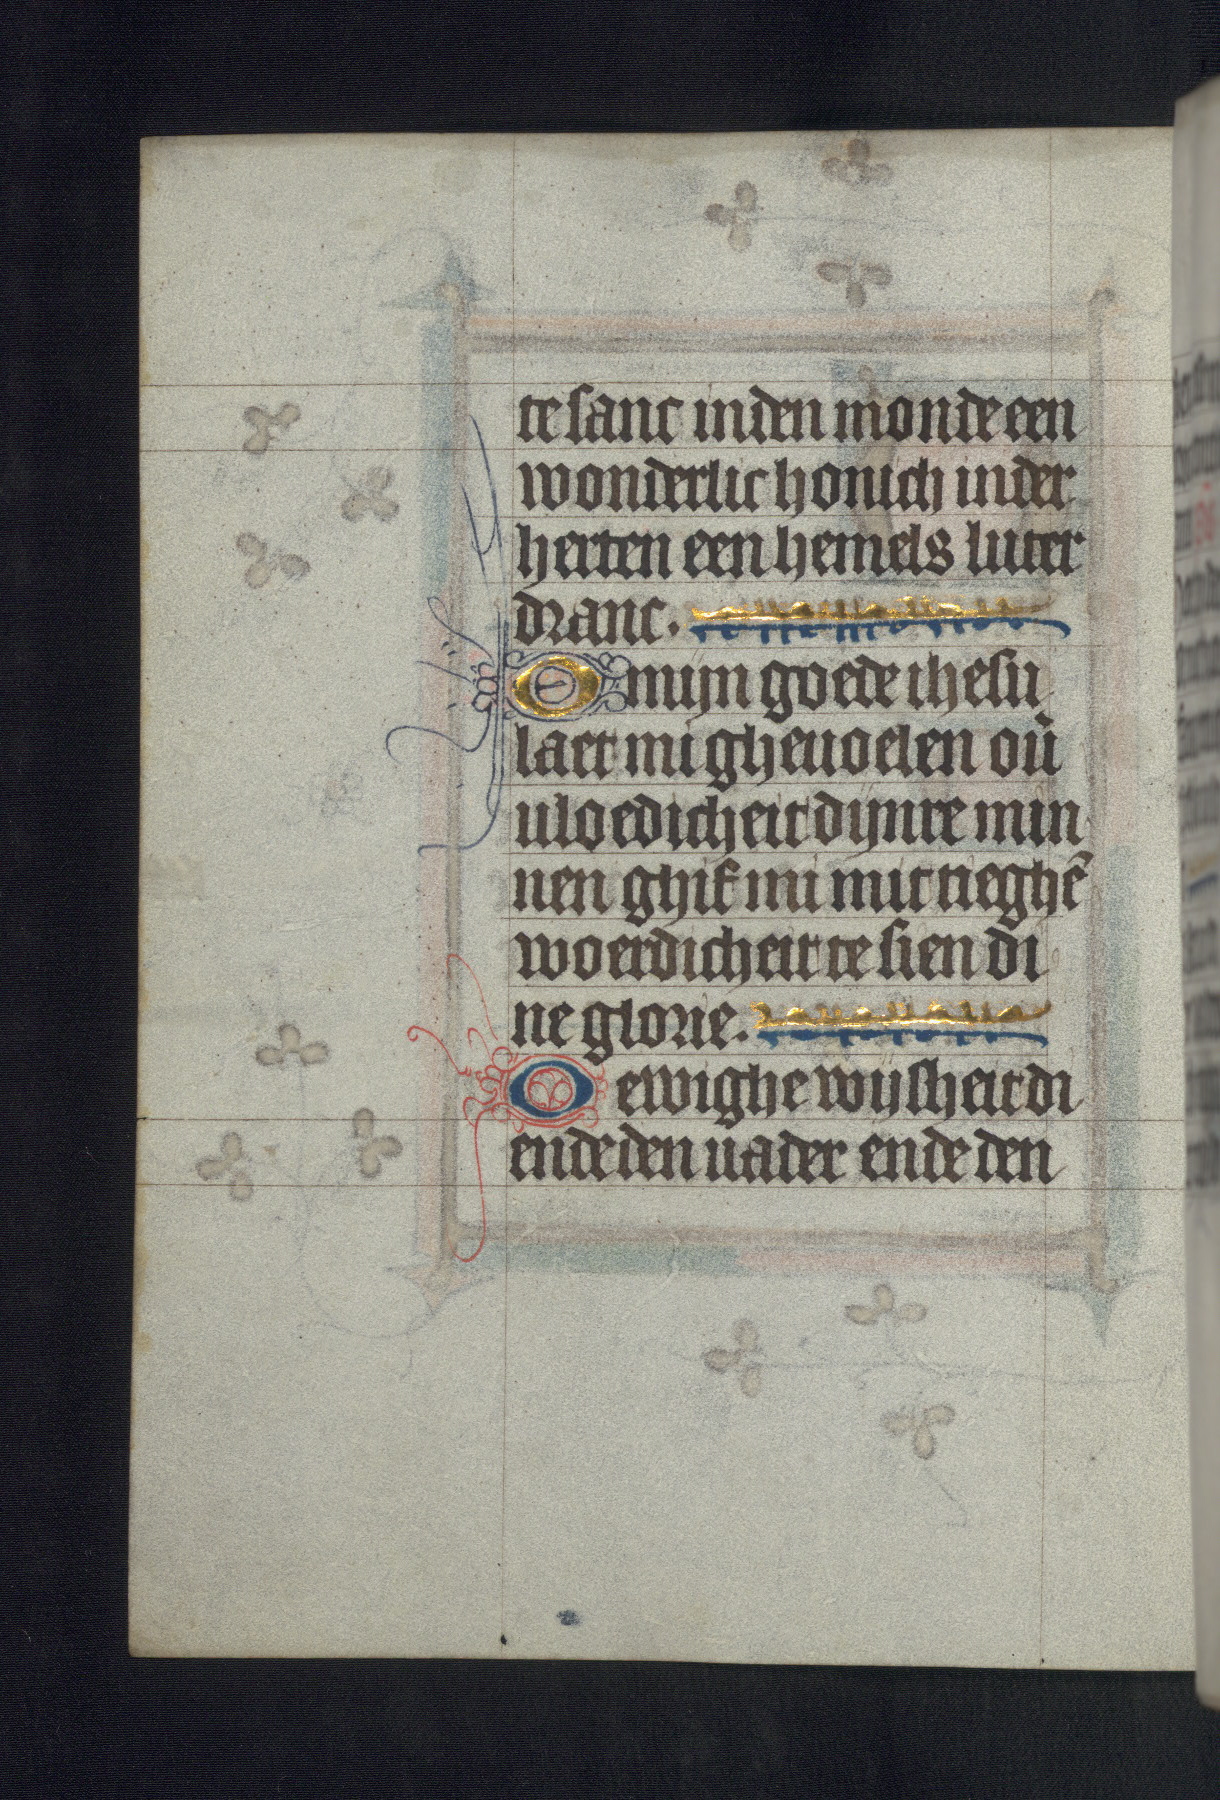 te sanc in den monde een
wonderlic honich in der
herten een hemels luter
dranc.
O mijn goede ihesu
laet mi gheuoelen ou̇
uloedicheit dijnre min
nen ghif mi mit tieghē
woerdicheit te sien di
ne glorie.
O ewighe wijsheit di
ende den uader ende den